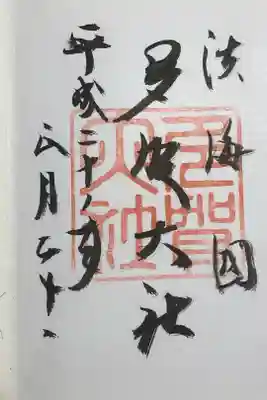 淡海国
多賀大社
平成二十八年
月二十
多賀
大社